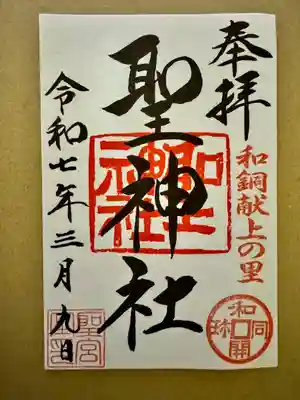 奉拝
和銅献上の里
和同開珎
聖神社
聖神社
令和七年三月九日